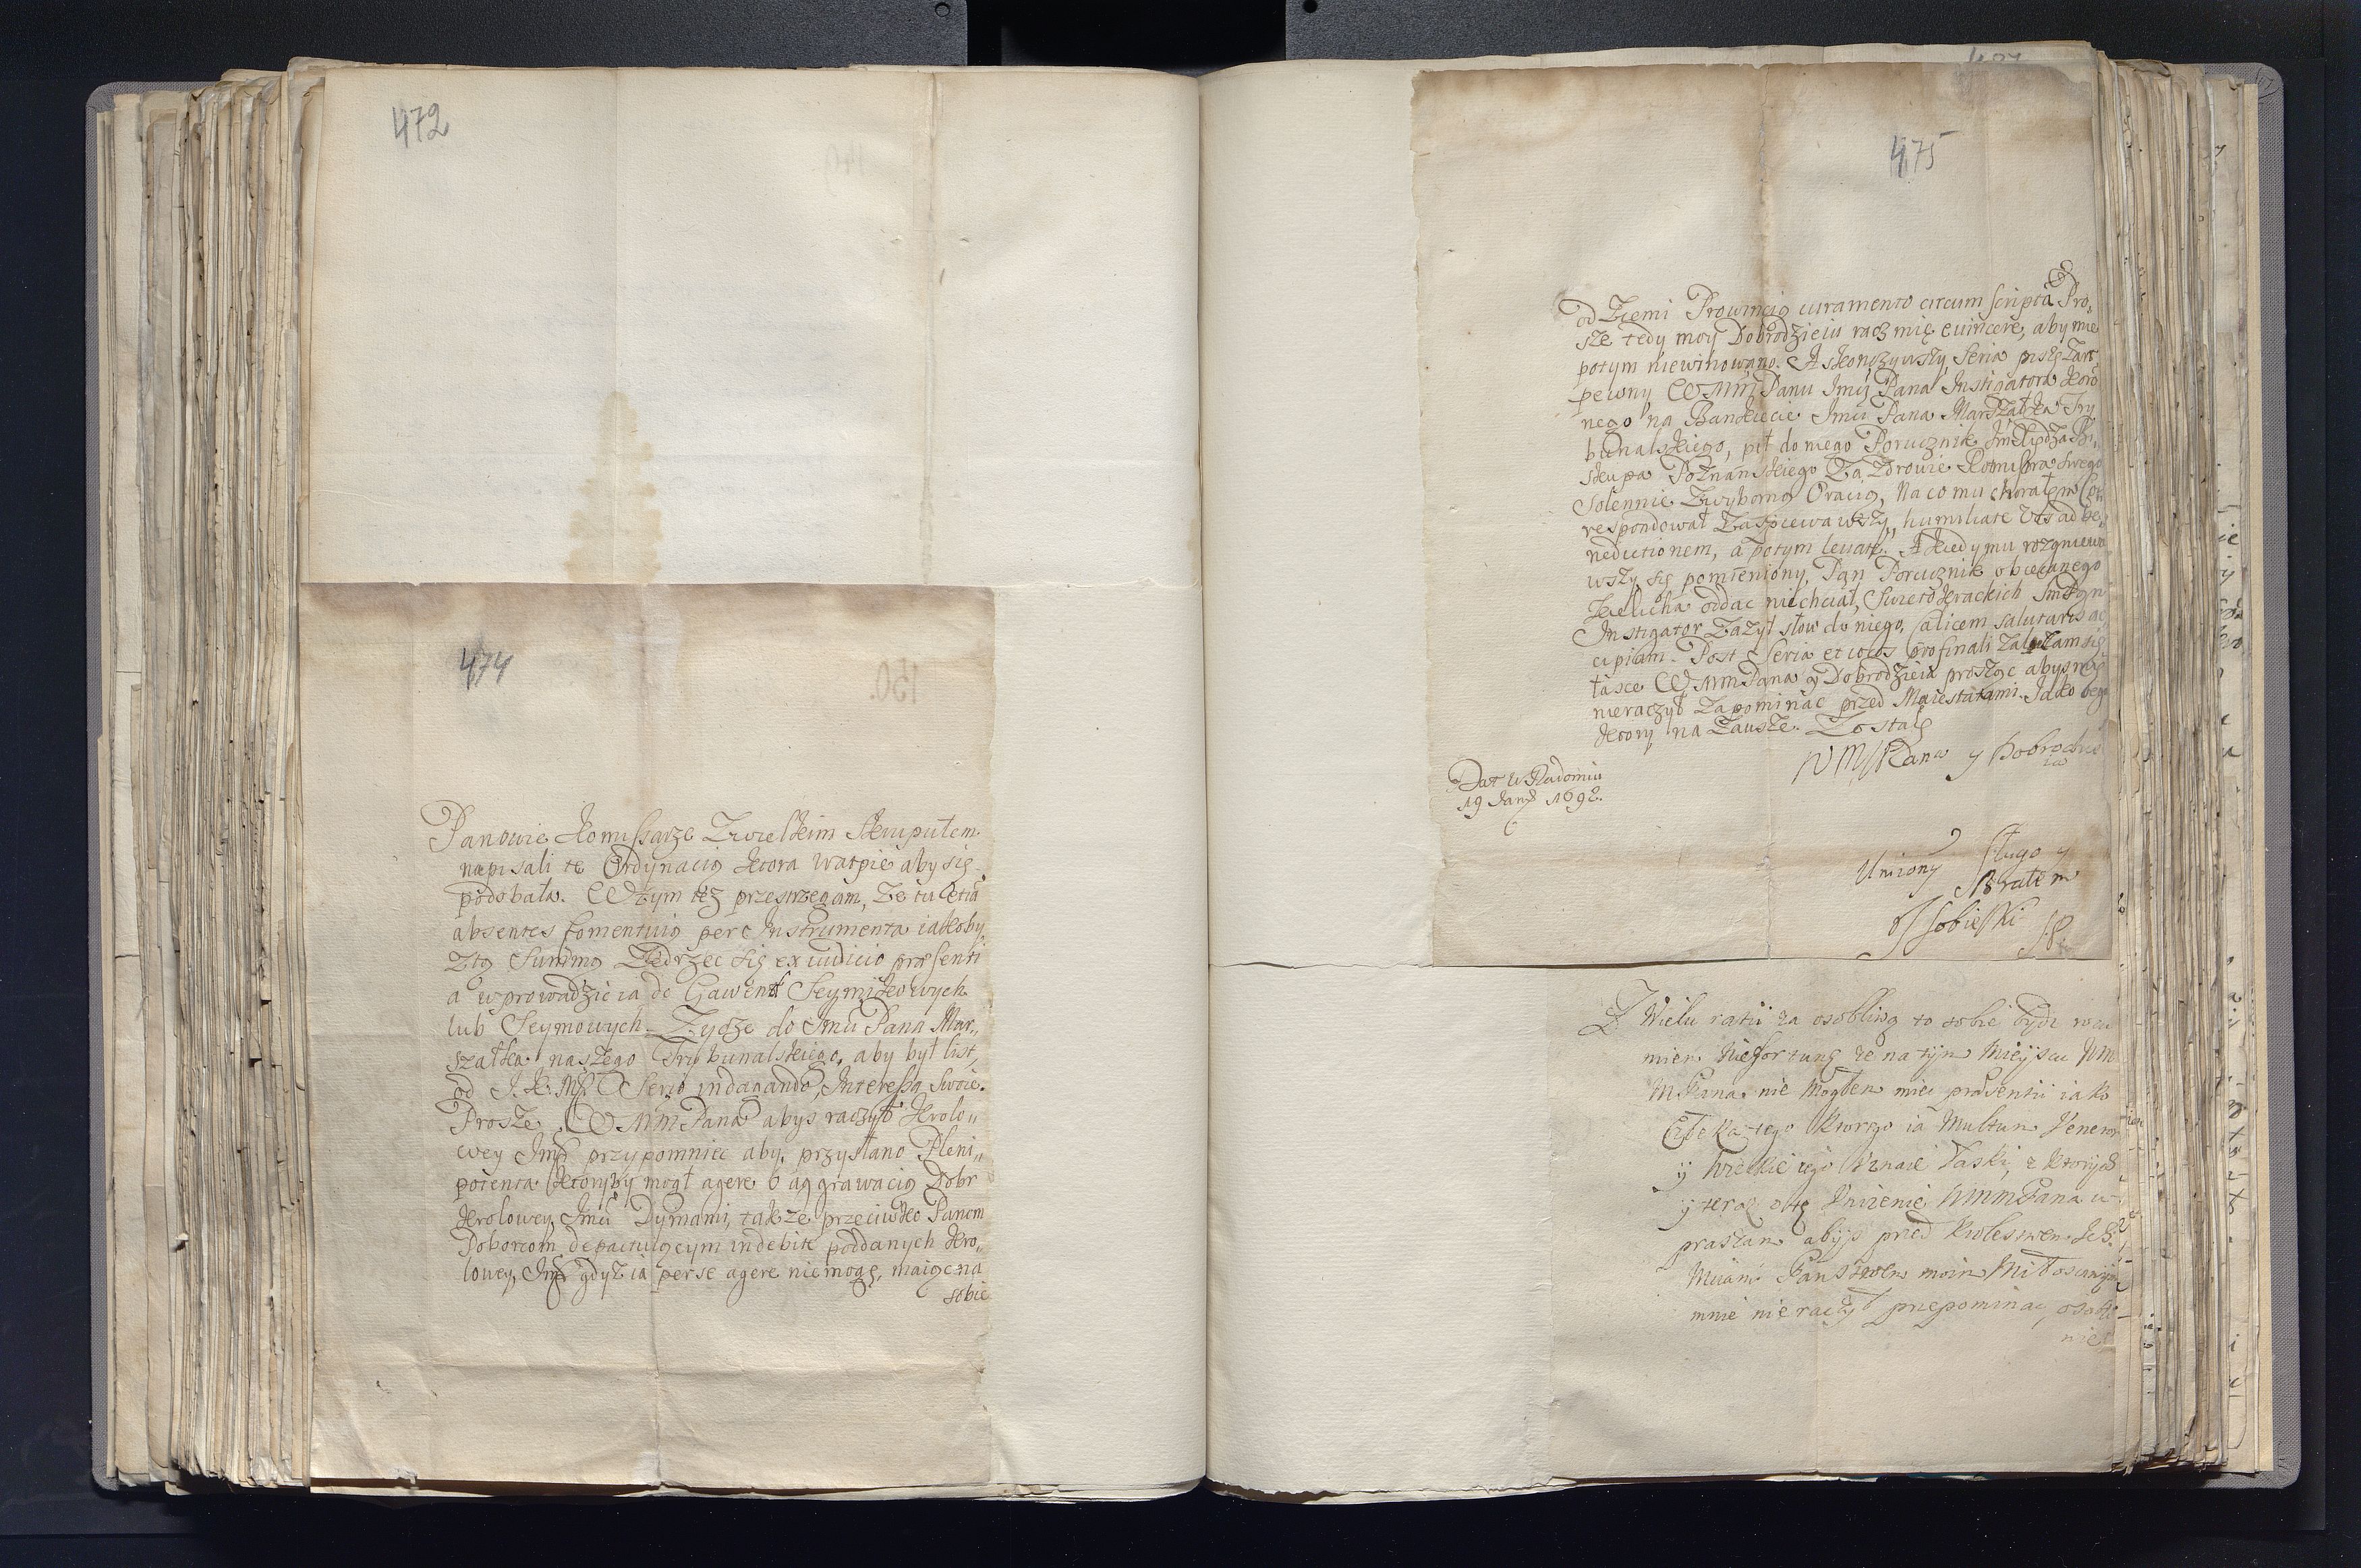 472
474
Panowie Komissarze Zwielkim skrupułem
napisali te Ordynacią ktora wątpię aby się
podobała. W tym też przestrzegam, że tu etia
absentes fomentuią per Instrumenta iakoby
z tą Summą zedrzec się ex iudicio præsenti
a wprowadzić ia do Gawęnd Seymikowych
lub Seymowych. Zyczę do Jmći Pana Mar„
szałka naszego Trybunalskiego, aby był list
od J. K. Mśći Serio indagando, Interessa Swoie.
Proszę WMM Pana abys raczył Krolo„
wey Jmći przypomniec aby, przysłano Pleni„
potenta ktoryby mogł agere o aggrawacią Dobr
Krolowey Jmći Dymami, także przeciwko Panom
Poborcom depactuiącym indebite poddanych Kro„
lowey Jmśći gdyż ia per se agere niemogę, maiąc na
sobie
475
od Ziemi Prowincią iuramento circumscripta Pro„
szę tedy moy Dobrodzieiu racz mię evincere, aby mię
potym niewinowano. A skonczywszy Seria piszę Zart
pewny WMM Panu Jmći Pana Instigatora Koro
nego na Bankiecie Jmći Pana Marszałka Try
bunalskiego, pił do niego Porucznik Jmći Xiędza Bi„
skupa Poznanskiego Za Zdrowie swego
Solennie Zwyborną Oracią, Na co mu chorałem Cor
respondował Zaśpiewawszy, humiliate vos ad be„
nedictionem, a potym levate. A kiedy mu rozgniewa
wszy się pomieniony, Pan Porucznik obiecanego
Kielicha oddac niechciał, Swietokrackich Jmć Pan
Instigator Zażył słow do niego, Calicem salutaris ac
cipiam. Post Seria et iocos pro finali zalecam się
łasce WMM Pana y Dobrodzieia prosząc abys mię
nieraczył zapominac przed Maiestatami. Jako tego
ktory na Zausze. Zostaię
WMM Pana y Dobrodzie
ia
Dat w Radomiu
19 Jany 1692.
Uniżony Sługo y
Bratem
Sobieski
Z Wielu ratii za osobliwą to sobie bydz rozu
miem niefortunę że na tym Mieyscu WM
M Pana nie mogłem miec præsentii iako
Człeka tego ktorego ia Multum Veneror
y wielkie iego uznaię łaski, z ktorych
y teraz o tę uniżenie WMM Pana u
praszam abys przed Krolestwem Ich
Mćiami Panstwem moim Miłosciwym
mnie nie raczył przepominac, osobli
nie